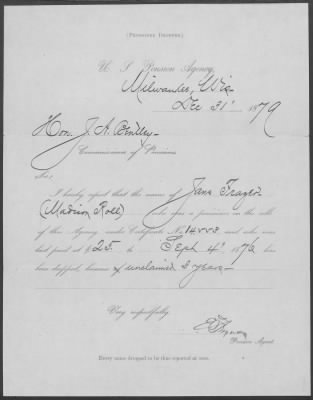 (PENSIONER DROPPED.)
U. S. Pension Agency,
Milwaukee, Wis
Dec 31 1879
Hon. J. A. Bentley
Commissioner of Pensions
Sir:
I hereby report that the name of Jane
(Madison Roll) who was a pensioner on the rolls
of this Agency under Certificate No. and who was
last paid at $ 25 to Sept 4 1876 has
been dropped, because of unclaimed 3 years
Very respectfully,
Pension Agent.
Every name dropped to be thus reported at once.